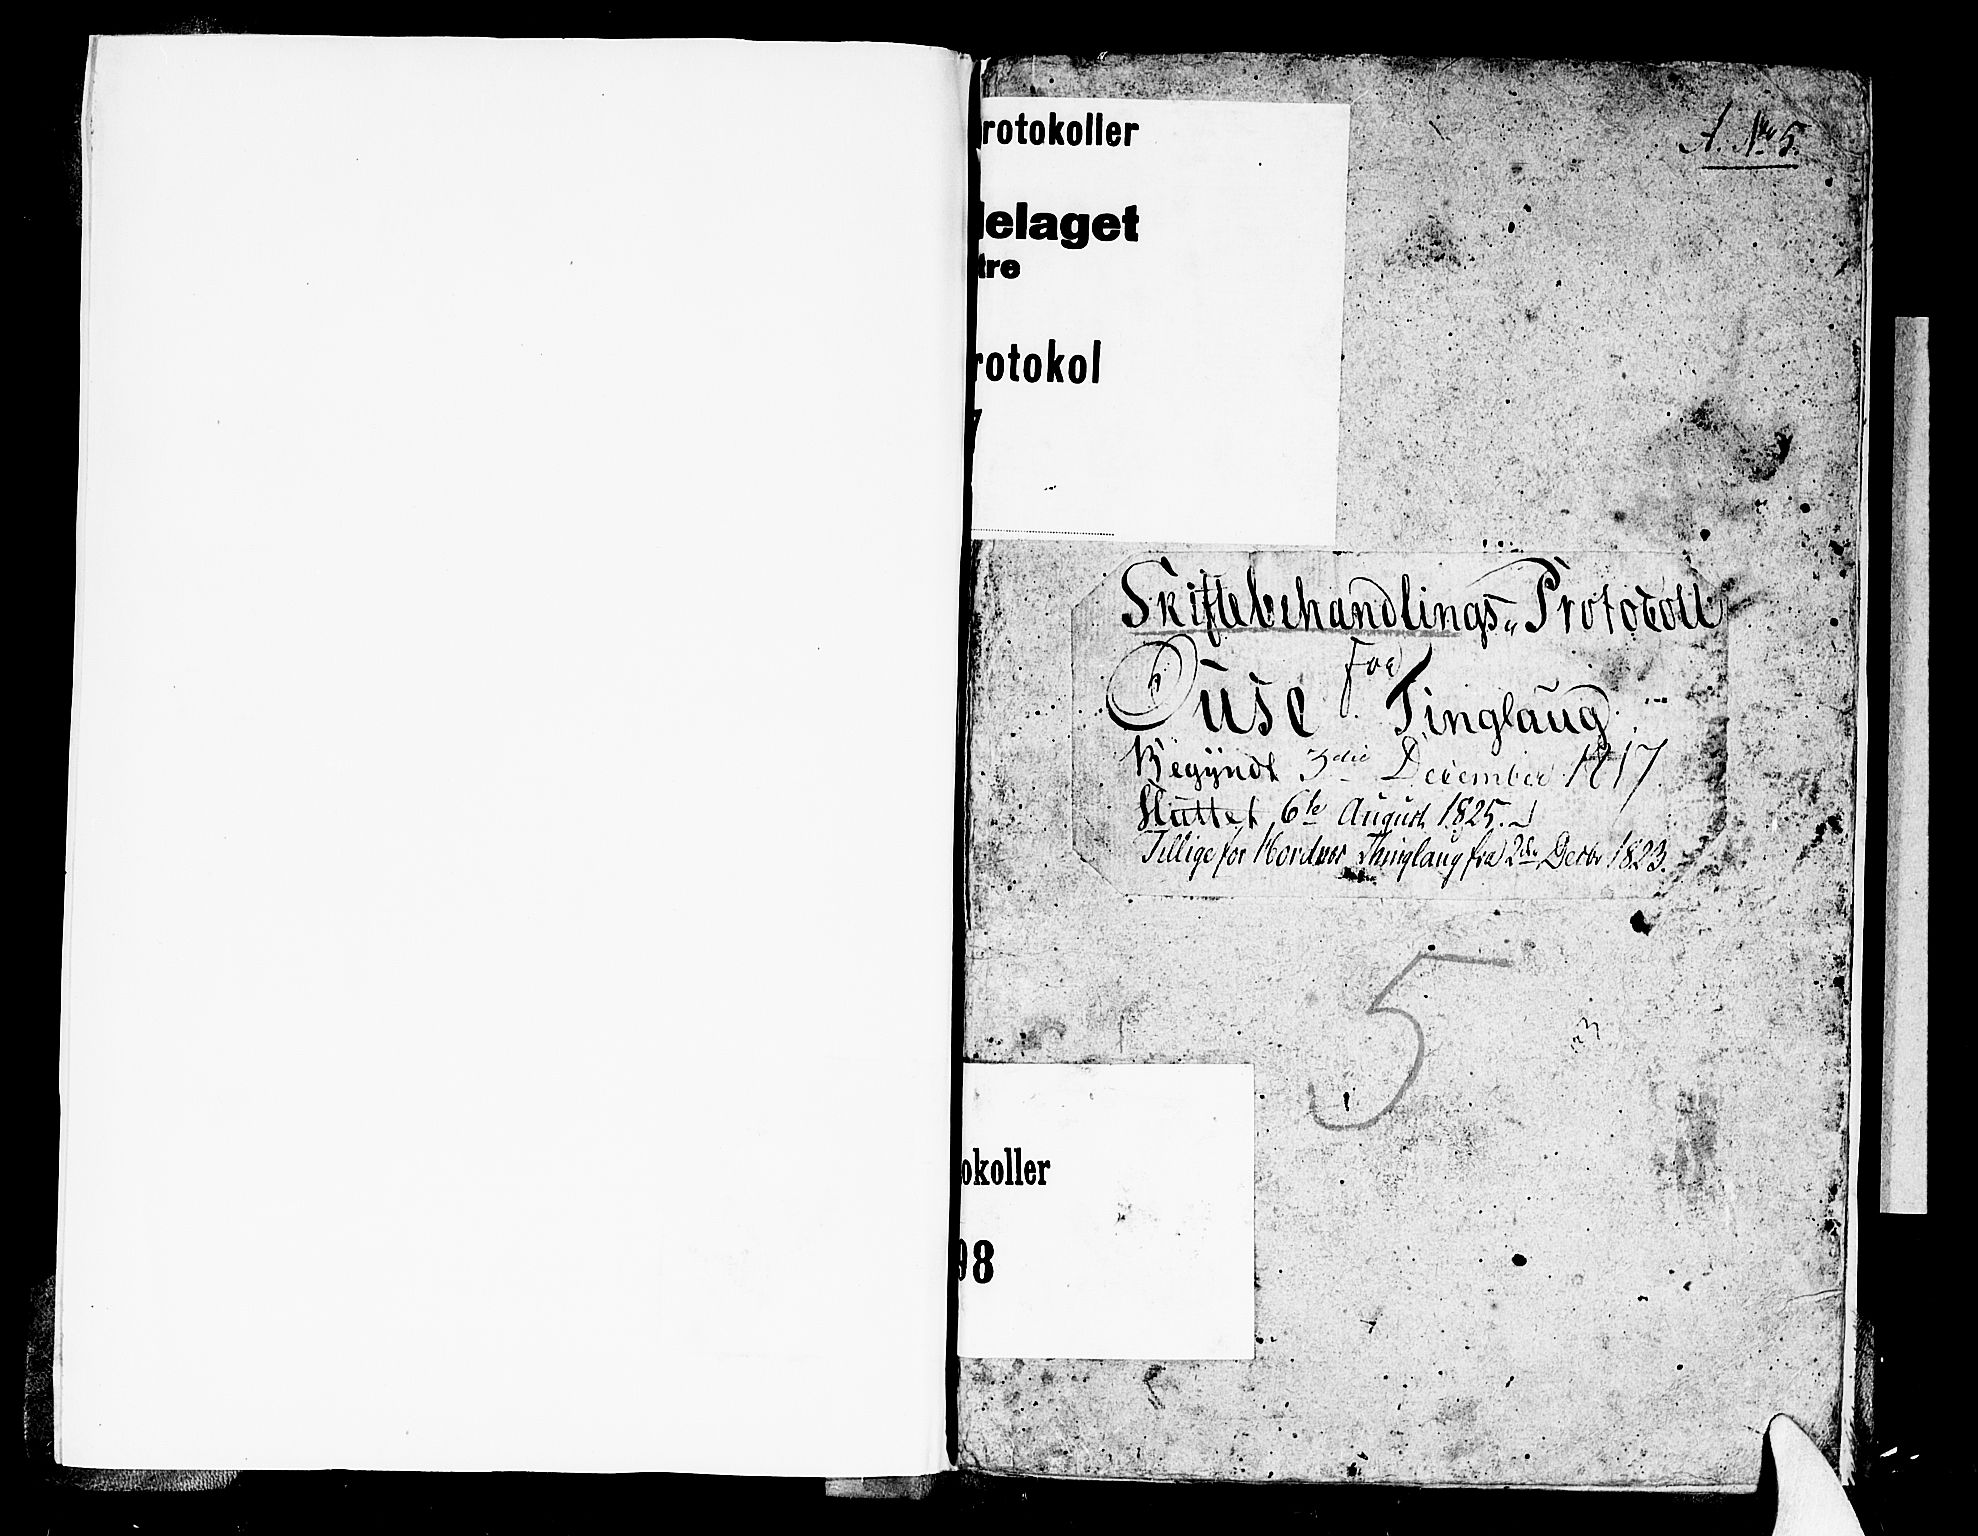 rotokoller
delaget
tre
rotokol
7
A. No 5.
Skiftebehandlings„Protocoll
for
Duse Tinglaug
Begÿndt 3die December 1817
Sluttet 6te August 1825.
Tillige for Hordnes Thinglaug fra 2de Decbr 1823.
5
okoller
98